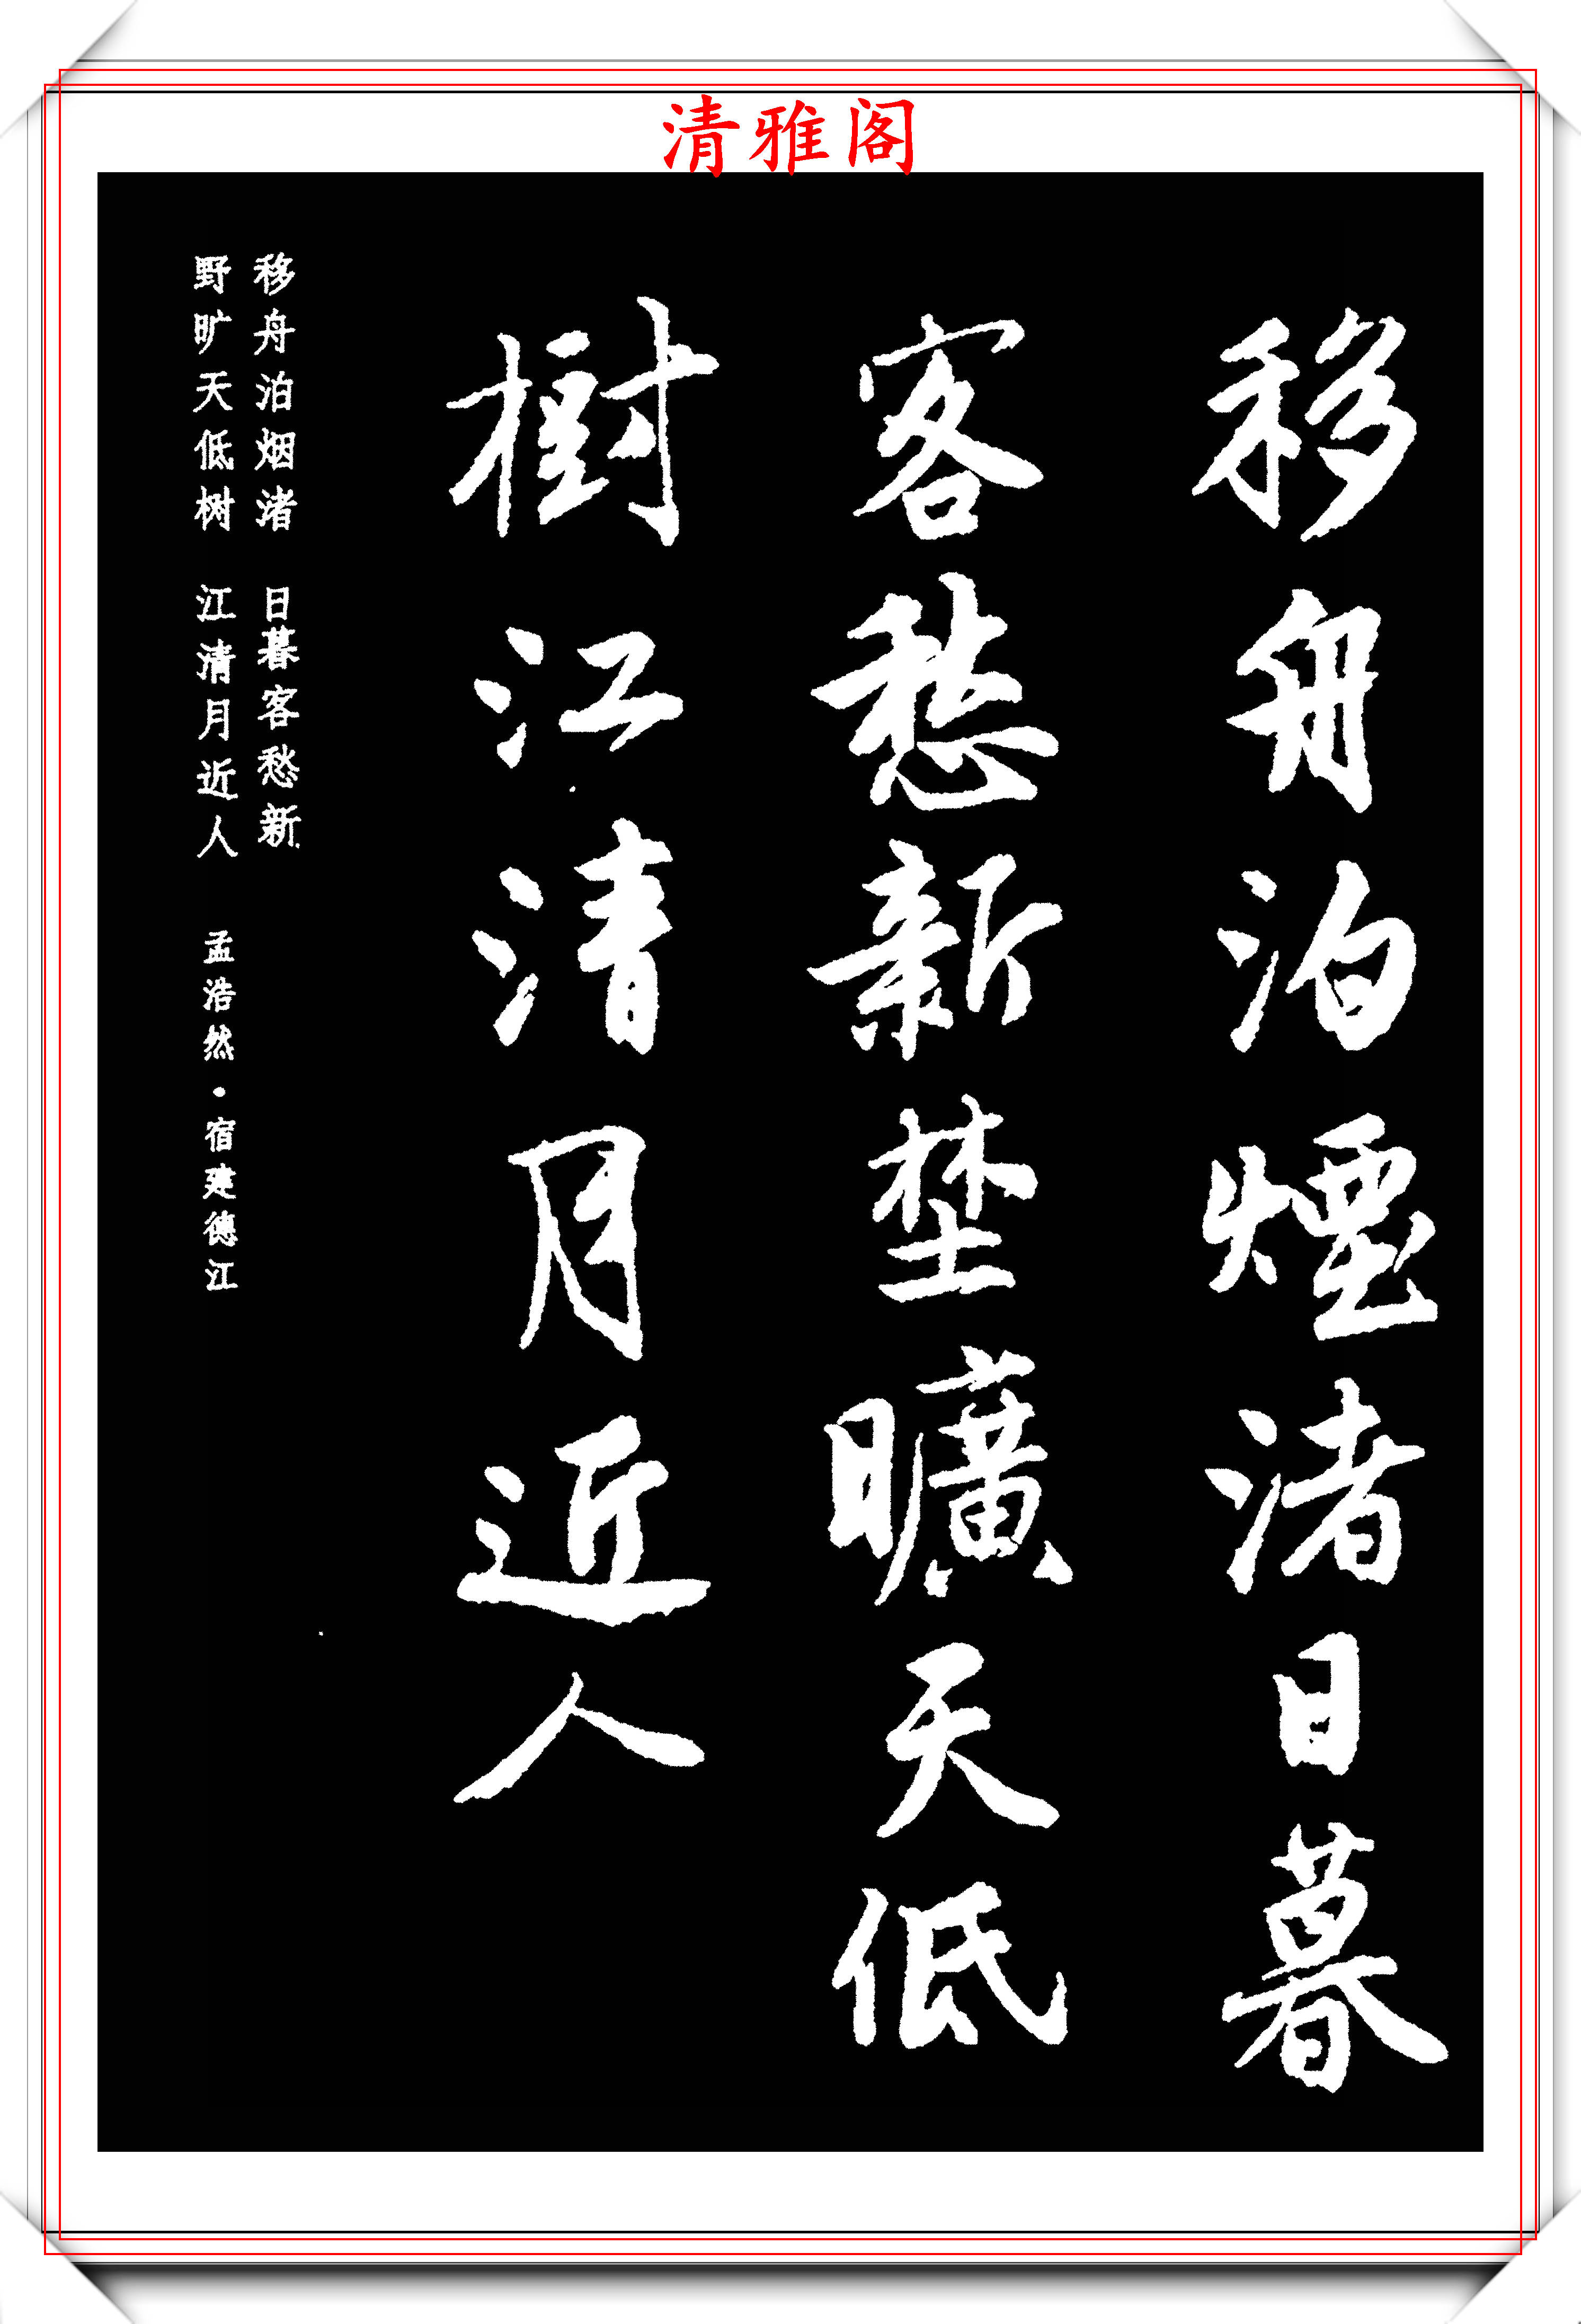 清雅阁
移舟泊煙渚日暮
客愁新埜曠天低
樹江清月近人
移舟泊烟渚 日暮客愁新
野旷天低树 江清月近人 孟浩然·宿建德江